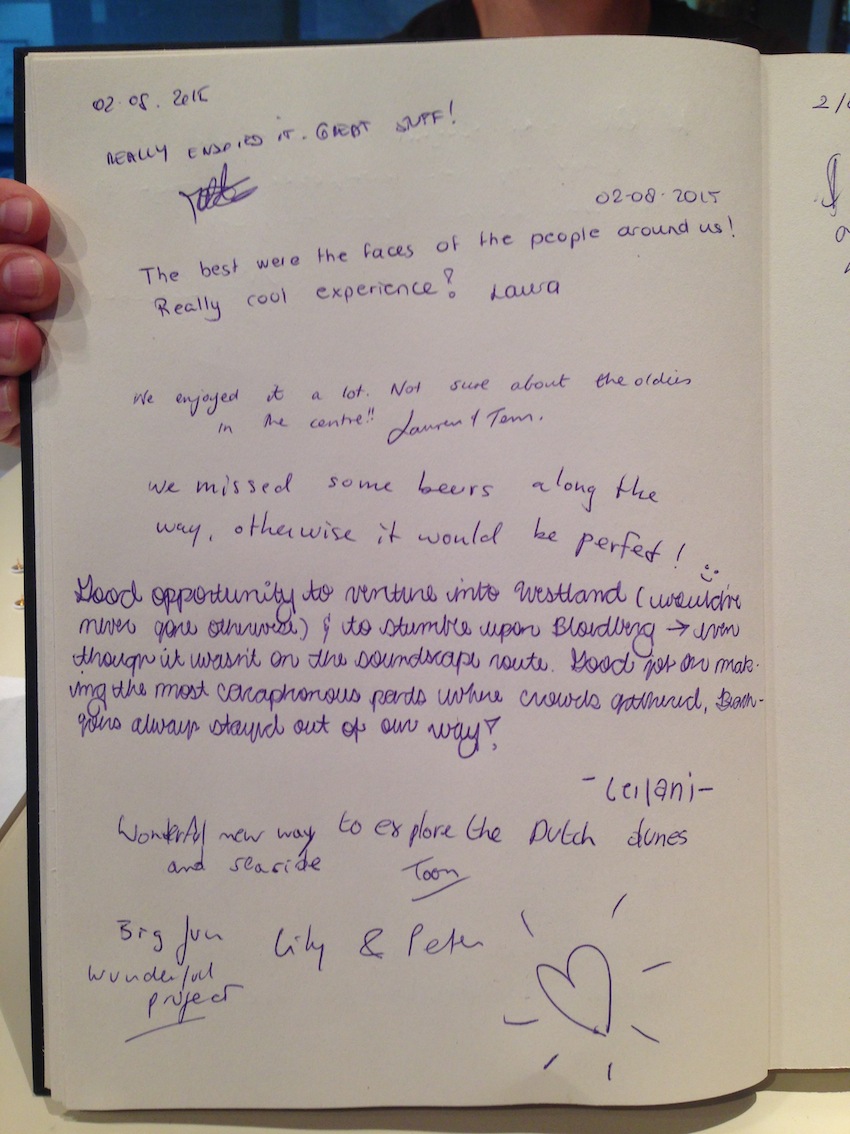 02.08.2015
REALLY ENJOYED IT. GREAT STUFF!
02-08-2015
The best were the faces of the people around us!
Really cool experience! Laura
We enjoyed it a lot. Not sure about the oldies
in the centre!! Lauren & Tom.
we missed some beers along the
way, otherwise it would be perfect!
Good opportunity to venture into Westland (would've
never gone otherwise) & to stumble upon Bloedberg → even
though it wasn't on the soundscape route. Good job on mak-
ing the most cacaphonous parts where crowds gathered,
goers always stayed out of our way!
-Leilani-
Wonderful new way to explore the Dutch dunes
and seaside Toon
Big fun Lily & Peter
wunderful
project
2/